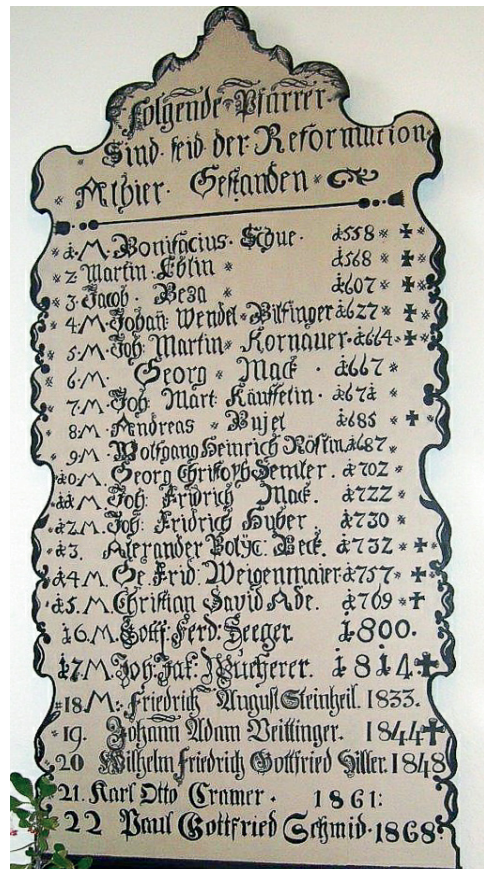 Folgende Pfarrer
Sind seid der Reformation
Alhier Gestanden
1. M. Bonifacius Schue. 1558 * ✝ *
2. Martin Eblin * 1568 *
3. Jacob Beza * 1607 * ✝ *
4. M. Johan̄ Wendel Bilfinger 1627 * ✝ *
5. M. Joh: Martin Kornauer 1664 ✝ *
6. M. Georg Mack 1667 *
7. M. Joh. Mart. Käuffelin 1671 *
8. M. Andreas * Bujel 1685 * ✝ *
9. M. Wolfgang Heinrich Röslin 1687 *
10. M. Georg Christoph Semler. 1702 *
11. M. Joh: Fridrich Mack. 1722 *
12. M. Joh: Fridrich Huber. 1730 *
13. Alexander Polÿc. Beck. 1732 * ✝ *
14. M. Ge. Frid: Weigenmaier 1757 * ✝
15. M. Christian David Ade. 1769 * ✝
16. M. Gottf: Ferd: Seeger. 1800.
17. M. Joh: Jak: Wucherer. 1814 ✝
18. M: Friedrich August Steinheil. 1833.
19. Johann Adam Veittinger. 1844 ✝
20 Wilhelm Friedrich Gottfried Hiller. 1848
21. Karl Otto Cramer. 1861:
22 Paul Gottfried Schmid. 1868.